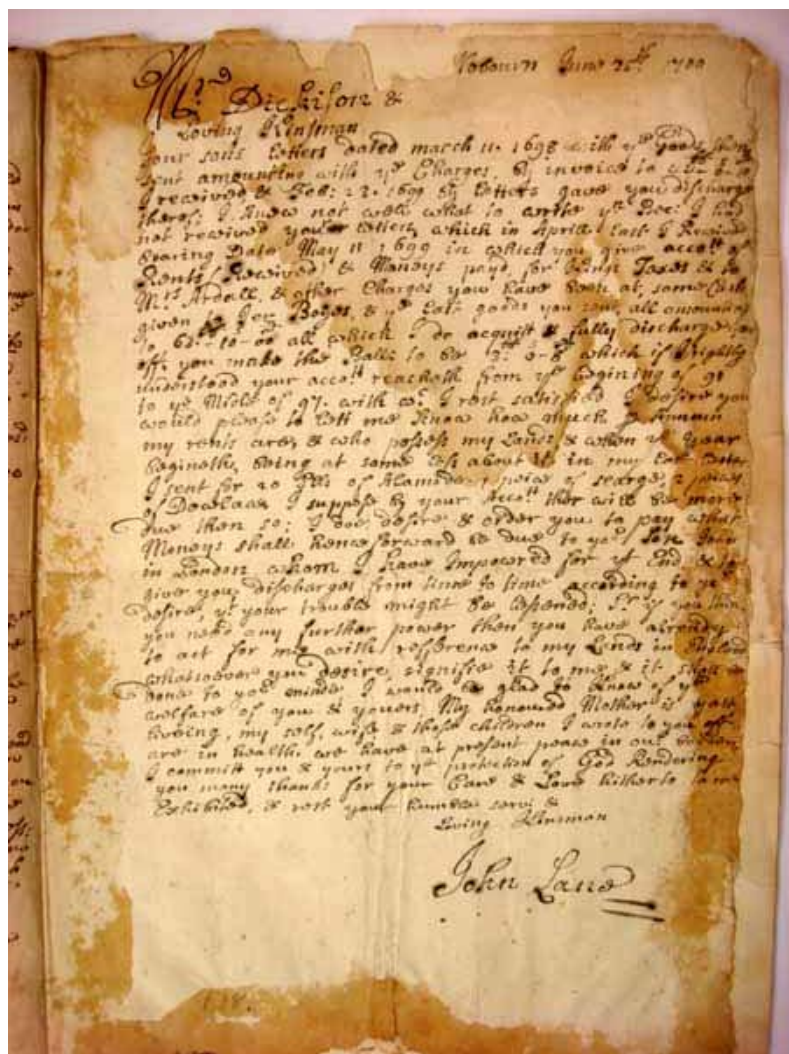 June 25th 1700
Mr Dickison &
Loving Kinsman
Your sons letters dated march 11. 1698 with ye goods then
sent amounting with ye Charges, by invoice to
I received & Feb: 22. 1699 by letters gave you discharge
thereof; I knew not well what to write ye I had
not received your letters, which in Aprill last I Received
bearing Date May 11 1699 in which you give accott of
Rents Received & Moneys payd, for Taxes & to
Mrs Ardall, & other Charges you have been at, some Cash
given to & ye last goods you sent, all amounting
to -10-00 all which I do acquitt & fully discharge you
off. you make the Ball: to be which if I rightly
understood your accott reacheth from ye begining of 91
to ye Midle of 97. with wc I rest satisfied I desire you
would please to lett me know how much
my rents are, & who possess my Lands & when ye year
begineth, being at some loss about it in my last letter
I sent for 20 of Alamode 1 peice of searge, 2 peices
of Dowlass I suppose by your Accott ther will be more
due then so; I doe desire & order you to pay what
Moneys shall henceforward be due to ye
in London whom I have Impowred for yt End & to
give you discharges from time to time according to ye
desire, yt your trouble might be lessened; Sr if you think
you need any further power then you have already
to act for me with refference to my Lands in England
whatsoever you desire, signifie it to me & it shall be
done to your minde I would be glad to know of ye
welfare of you & yours, My honoured Mother is yett
liveing, my self, wife & those children I wrote to you off
are in health, we have at present peace in our
I committ you & yours to ye protection of God Rendering
you many thanks for your Care & Love hitherto to me
Exhibited, & rest your humble servt &
Loving Kinsman
John Lane